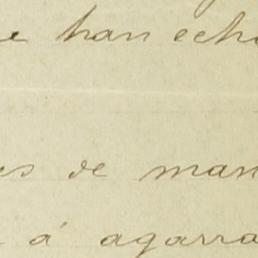 e han echo
es de man
á agarra